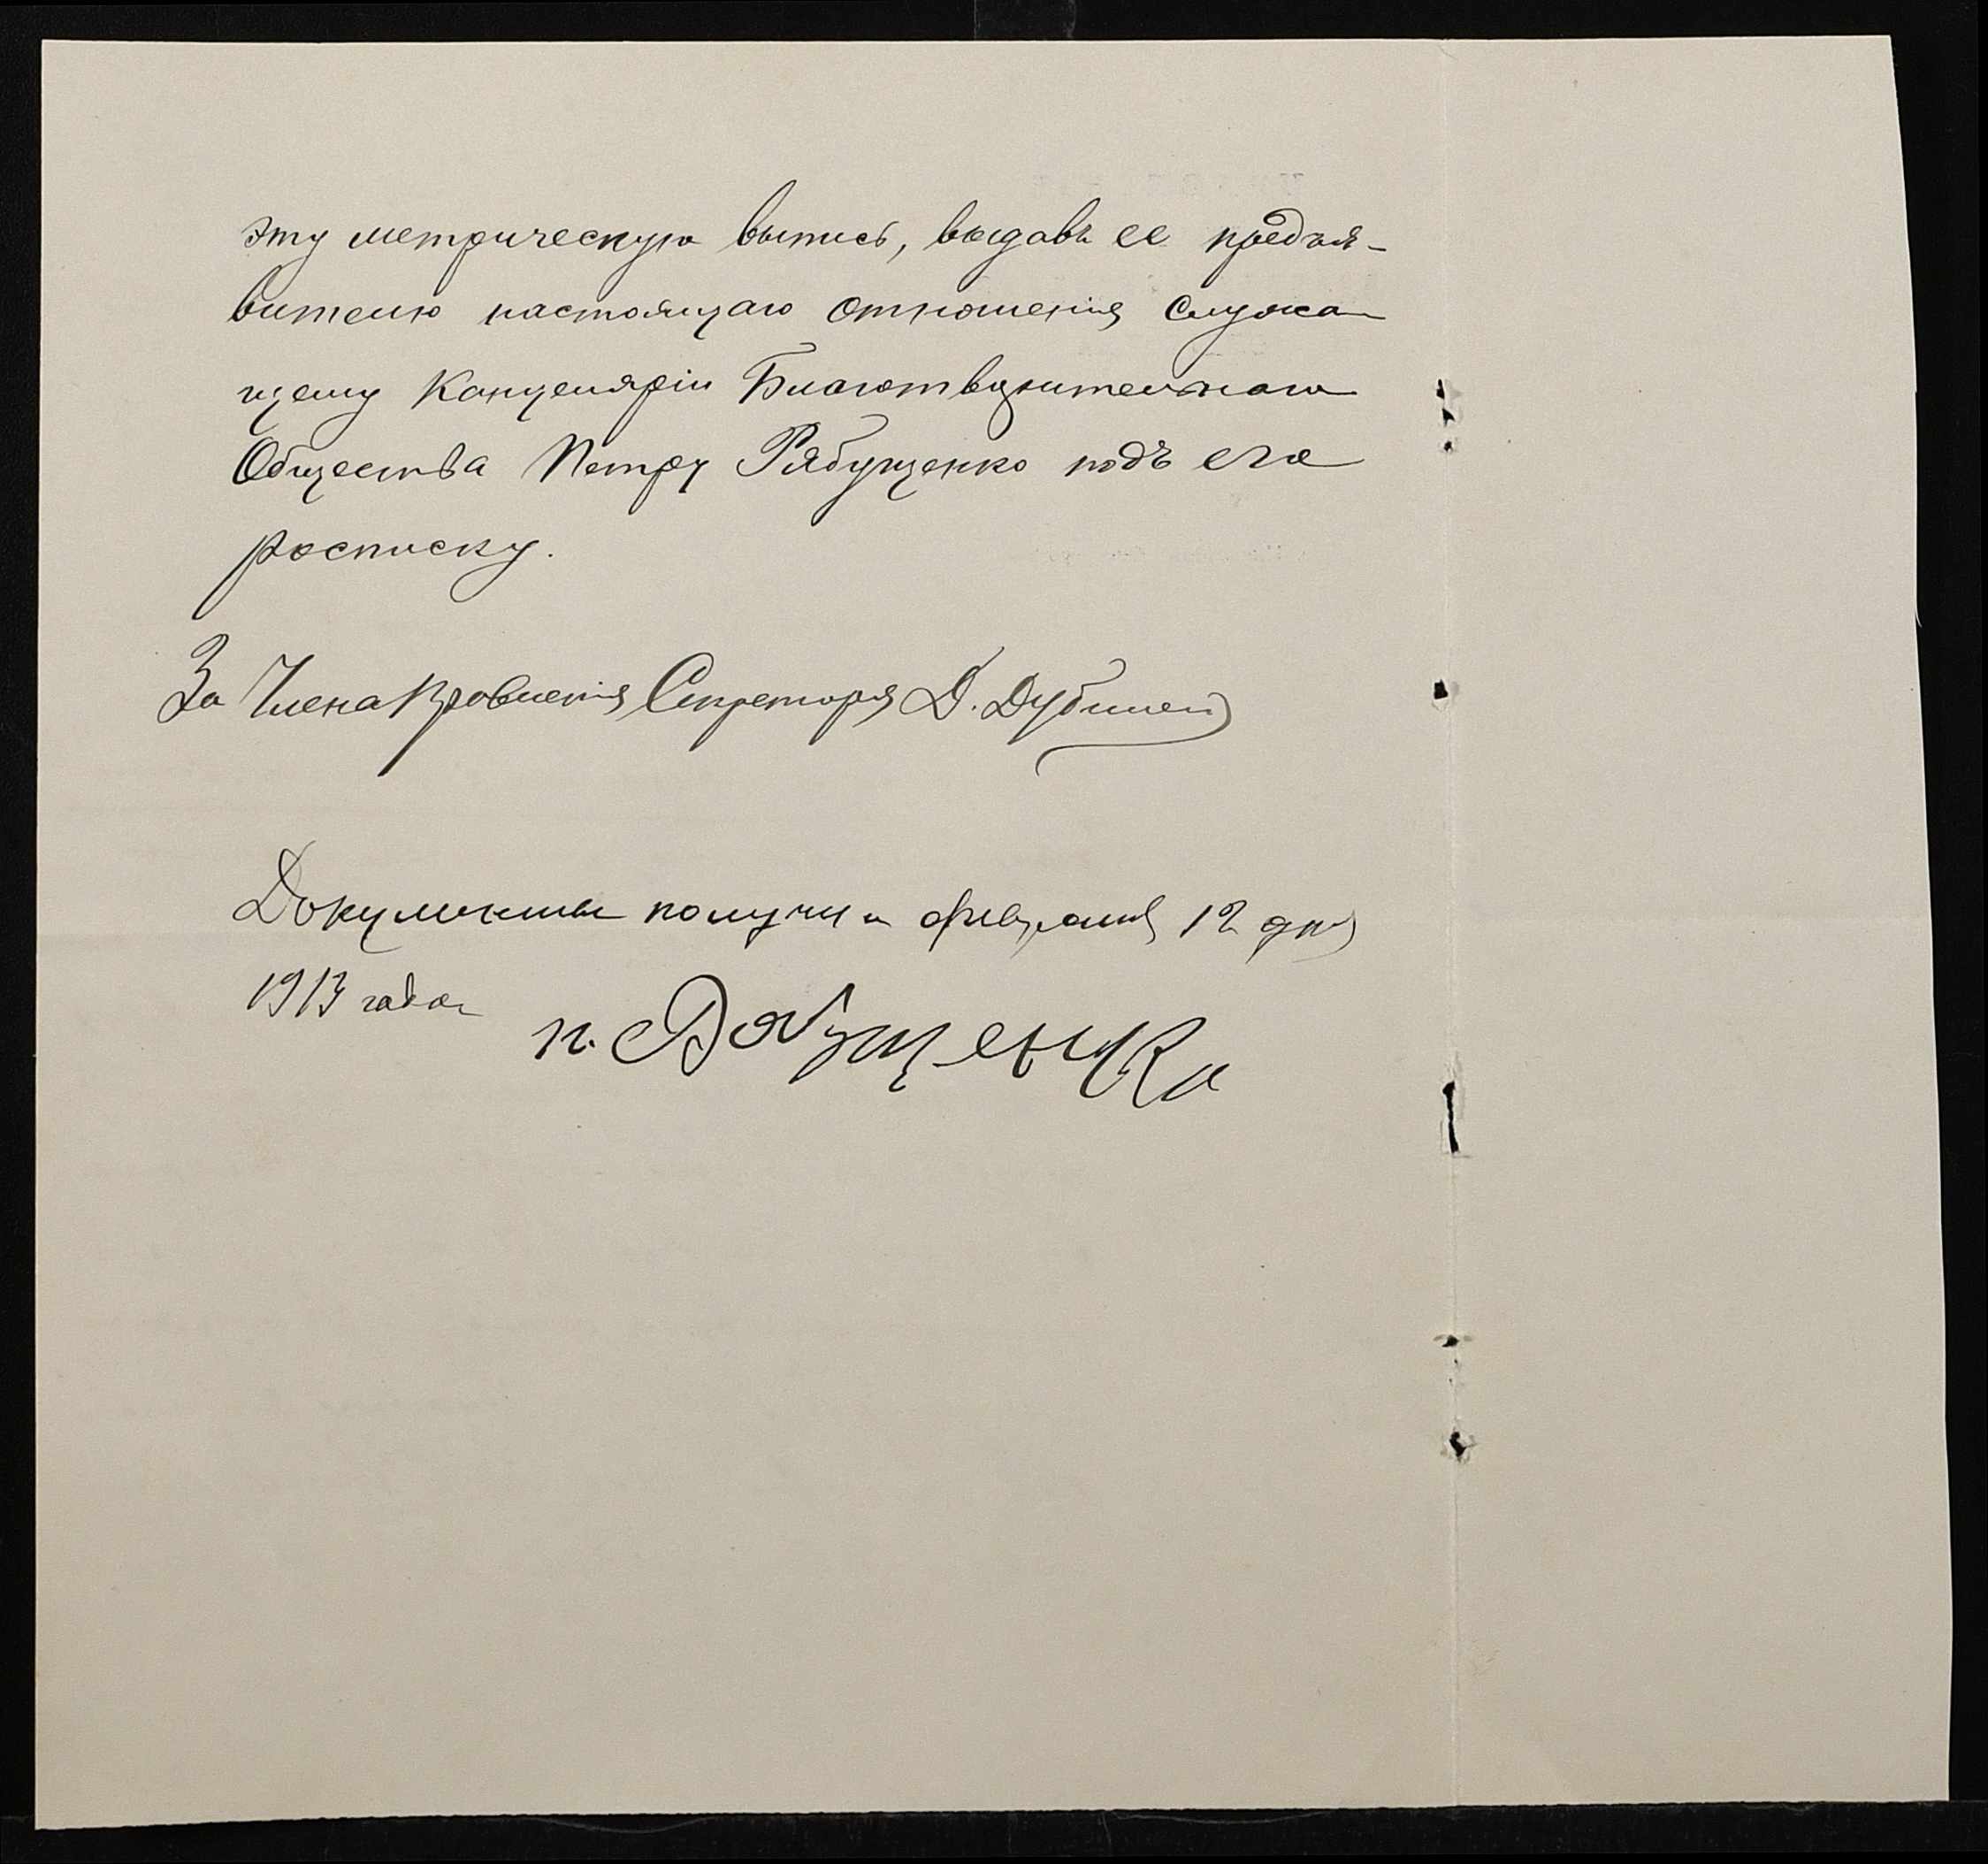 эту метрическую выпись, выдавъ ее предъя-
вителю настоящаго отношенія служа-
щему Канцеляріи Благотворительнаго
Общества Петру Рябущенко подъ его
росписку.
За Члена Правленія Секретарь Д.
Документы получилъ февраля 12 дня
1913 года
П. Рябущенко